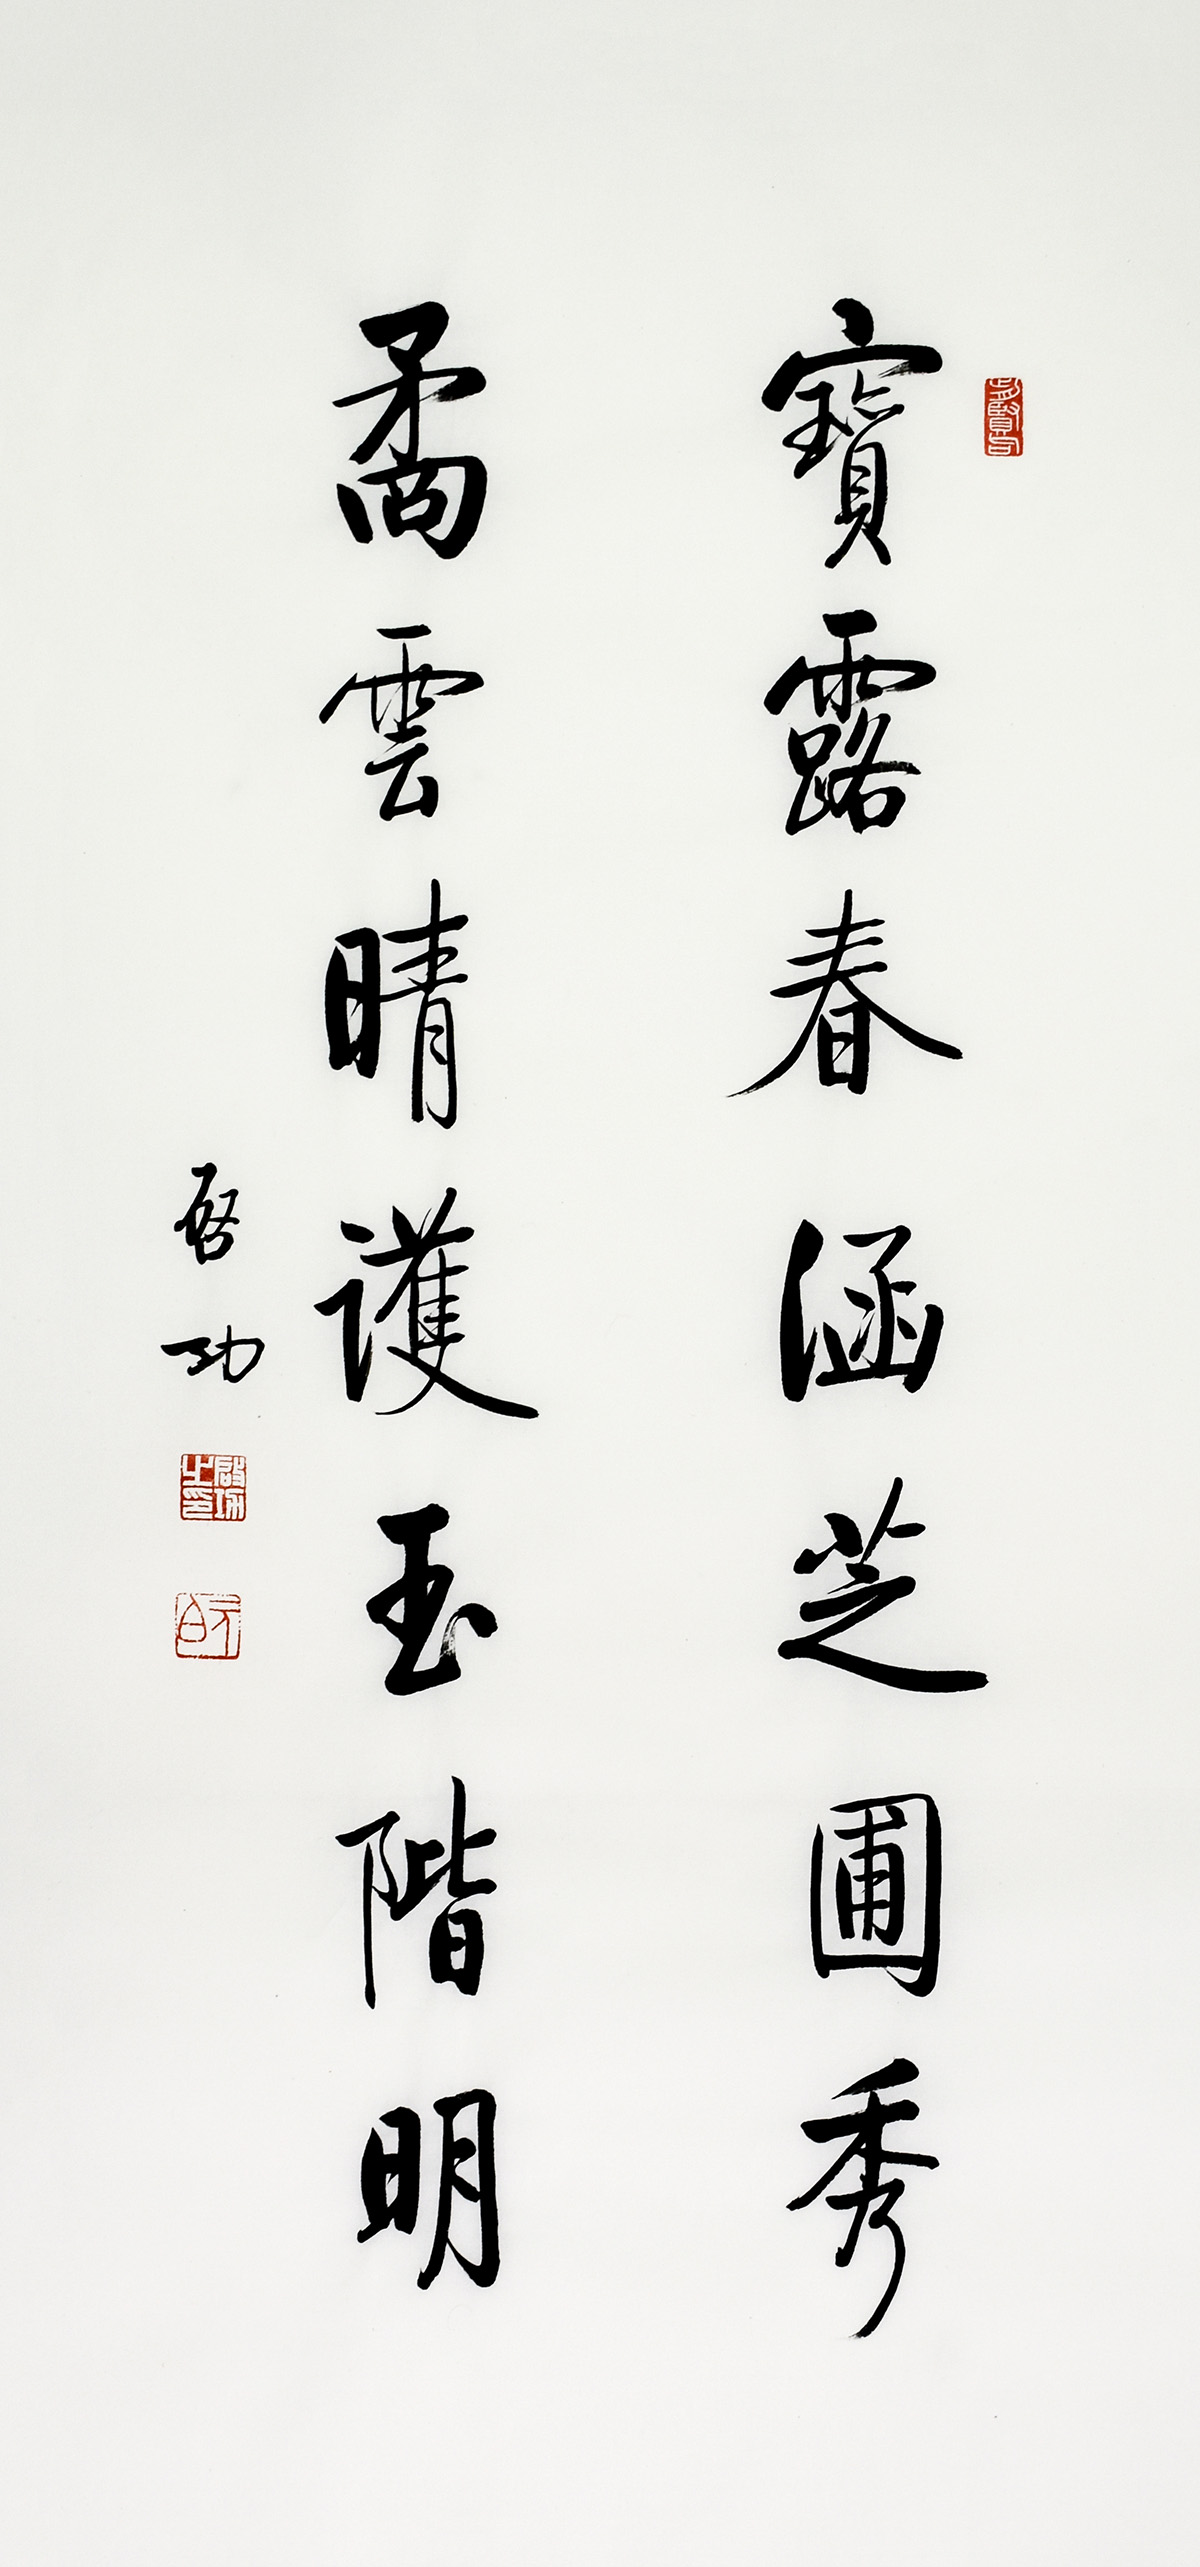 寶露春涵芝圃秀
矞雲晴護玉階明
啓功
啟功之印
元白